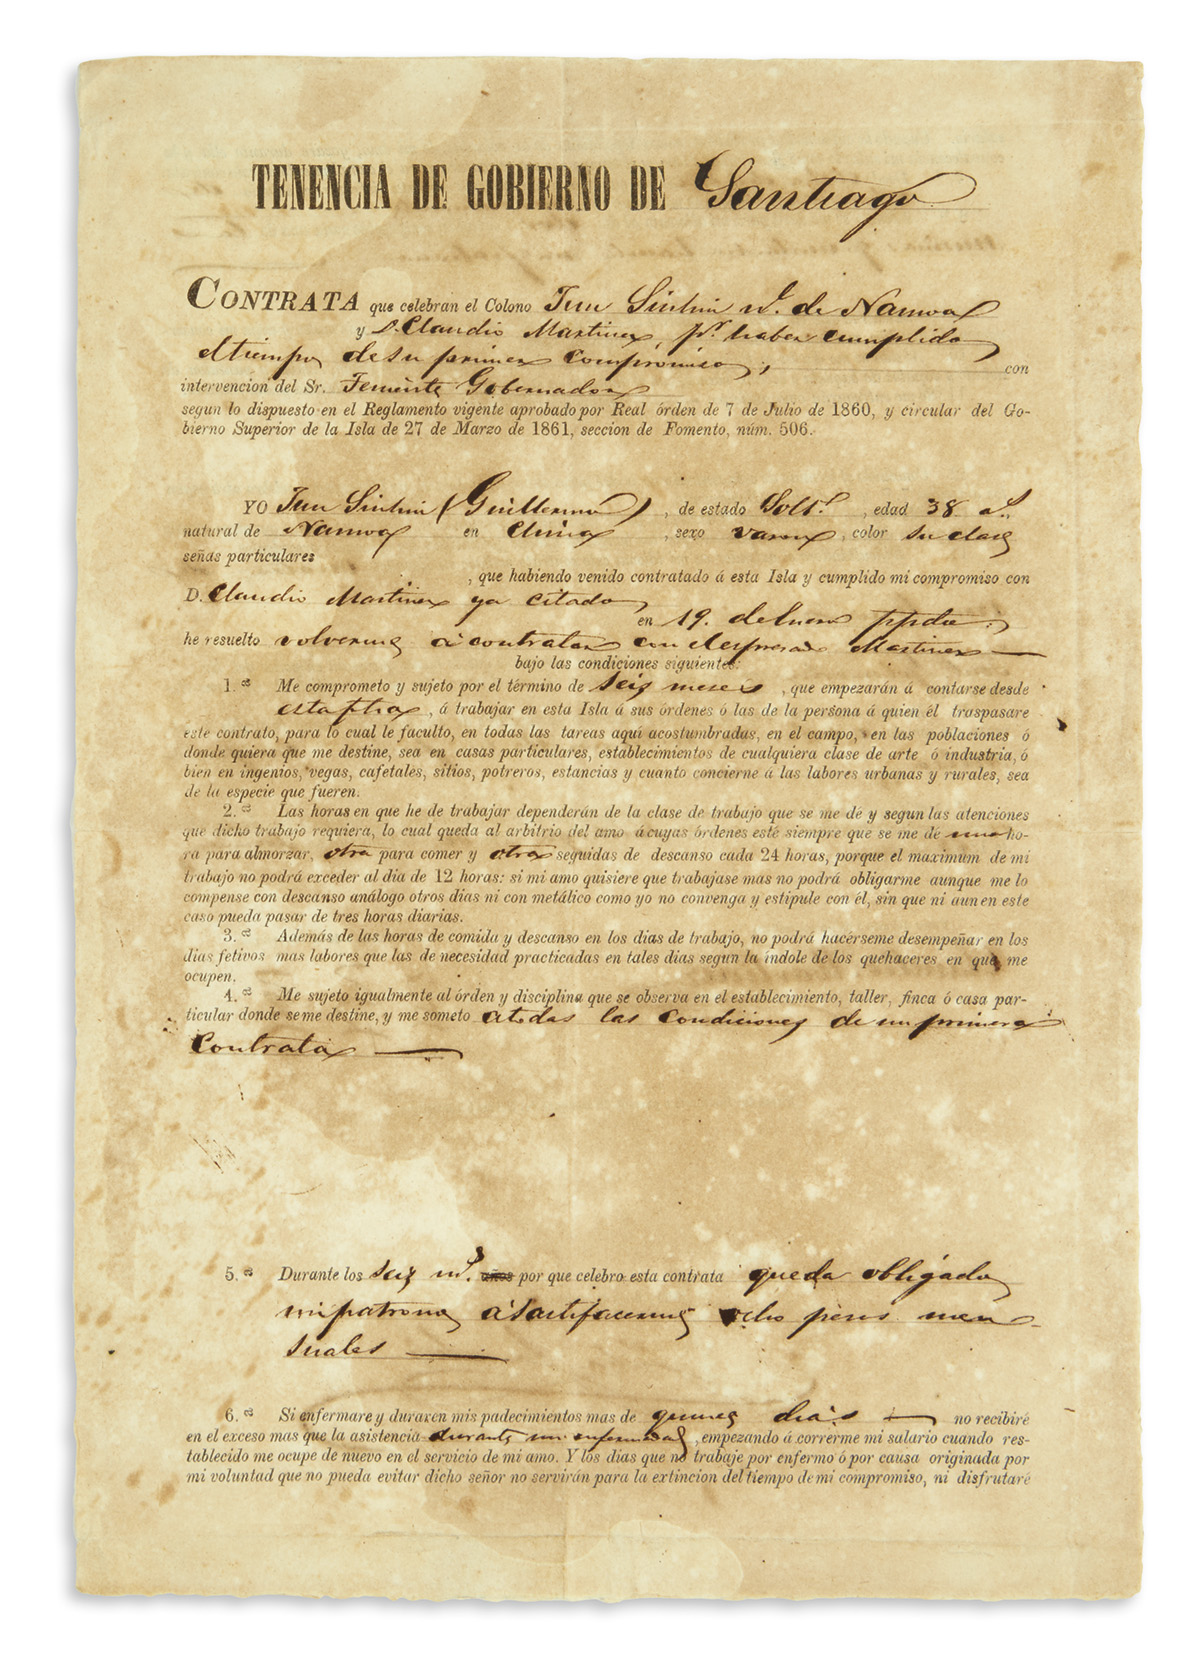 TENENCIA DE GOBIERNO DE Santiago
CONTRATA que celebran el Colono
y D. Claudio Martinez, pr. haber cumplido
el tiempo de su primer compromiso, con
intervencion del Sr. Teniente Gobernador
segun lo dispuesto en el Reglamento vigente aprobado por Real órden de 7 de Julio de 1860, y circular del Go-
bierno Superior de la Isla de 27 de Marzo de 1861, seccion de Fomento, núm. 506.
YO (Guillermo), de estado Solt.º, edad 38 a.s,
natural de en China, sexo varon, color su clase
señas particulares
, que habiendo venido contratado á esta Isla y cumplido mi compromiso con
D. Claudio Martinez ya citado
en 19. de Enero ppdo.;
he resuelto volverme á contratar con el espresado Martinez
bajo las condiciones siguientes:
1.ª Me comprometo y sujeto por el término de seis meses, que empezarán á contarse desde
esta fha, á trabajar en esta Isla á sus órdenes ó las de la persona á quien él traspasare
este contrato, para lo cual le faculto, en todas las tareas aquí acostumbradas, en el campo, en las poblaciones ó
donde quiera que me destine, sea en casas particulares, establecimientos de cualquiera clase de arte ó industria, ó
bien en ingenios, vegas, cafetales, sitios, potreros, estancias y cuanto concierne á las labores urbanas y rurales, sea
de la especie que fueren.
2.ª Las horas en que he de trabajar dependerán de la clase de trabajo que se me dé y segun las atenciones
que dicho trabajo requiera, lo cual queda al arbitrio del amo á cuyas órdenes esté siempre que se me de una ho-
ra para almorzar, otra para comer y otras seguidas de descanso cada 24 horas, porque el maximum de mi
trabajo no podrá exceder al dia de 12 horas: si mi amo quisiere que trabajase mas no podrá obligarme aunque me lo
compense con descanso análogo otros dias ni con metálico como yo no convenga y estipule con él, sin que ni aun en este
caso pueda pasar de tres horas diarias.
3.ª Además de las horas de comida y descanso en los dias de trabajo, no podrá hacérseme desempeñar en los
dias fetivos mas labores que las de necesidad practicadas en tales dias segun la índole de los quehaceres en que me
ocupen.
4.ª Me sujeto igualmente al órden y disciplina que se observa en el establecimiento, taller, finca ó casa par-
ticular donde se me destine, y me someto a todas las condiciones de mi primera
Contrata
5.ª Durante los seis m.s años por que celebro esta contrata queda obligado
mi patrono á satisfacerme ocho pesos men-
suales
6.ª Si enfermare y duraren mis padecimientos mas de quince dias no recibiré
en el exceso mas que la asistencia durante mi enfermedad, empezando á correrme mi salario cuando res-
tablecido me ocupe de nuevo en el servicio de mi amo. Y los dias que no trabaje por enfermo ó por causa originada por
mi voluntad que no pueda evitar dicho señor no servirán para la extincion del tiempo de mi compromiso, ni disfrutaré